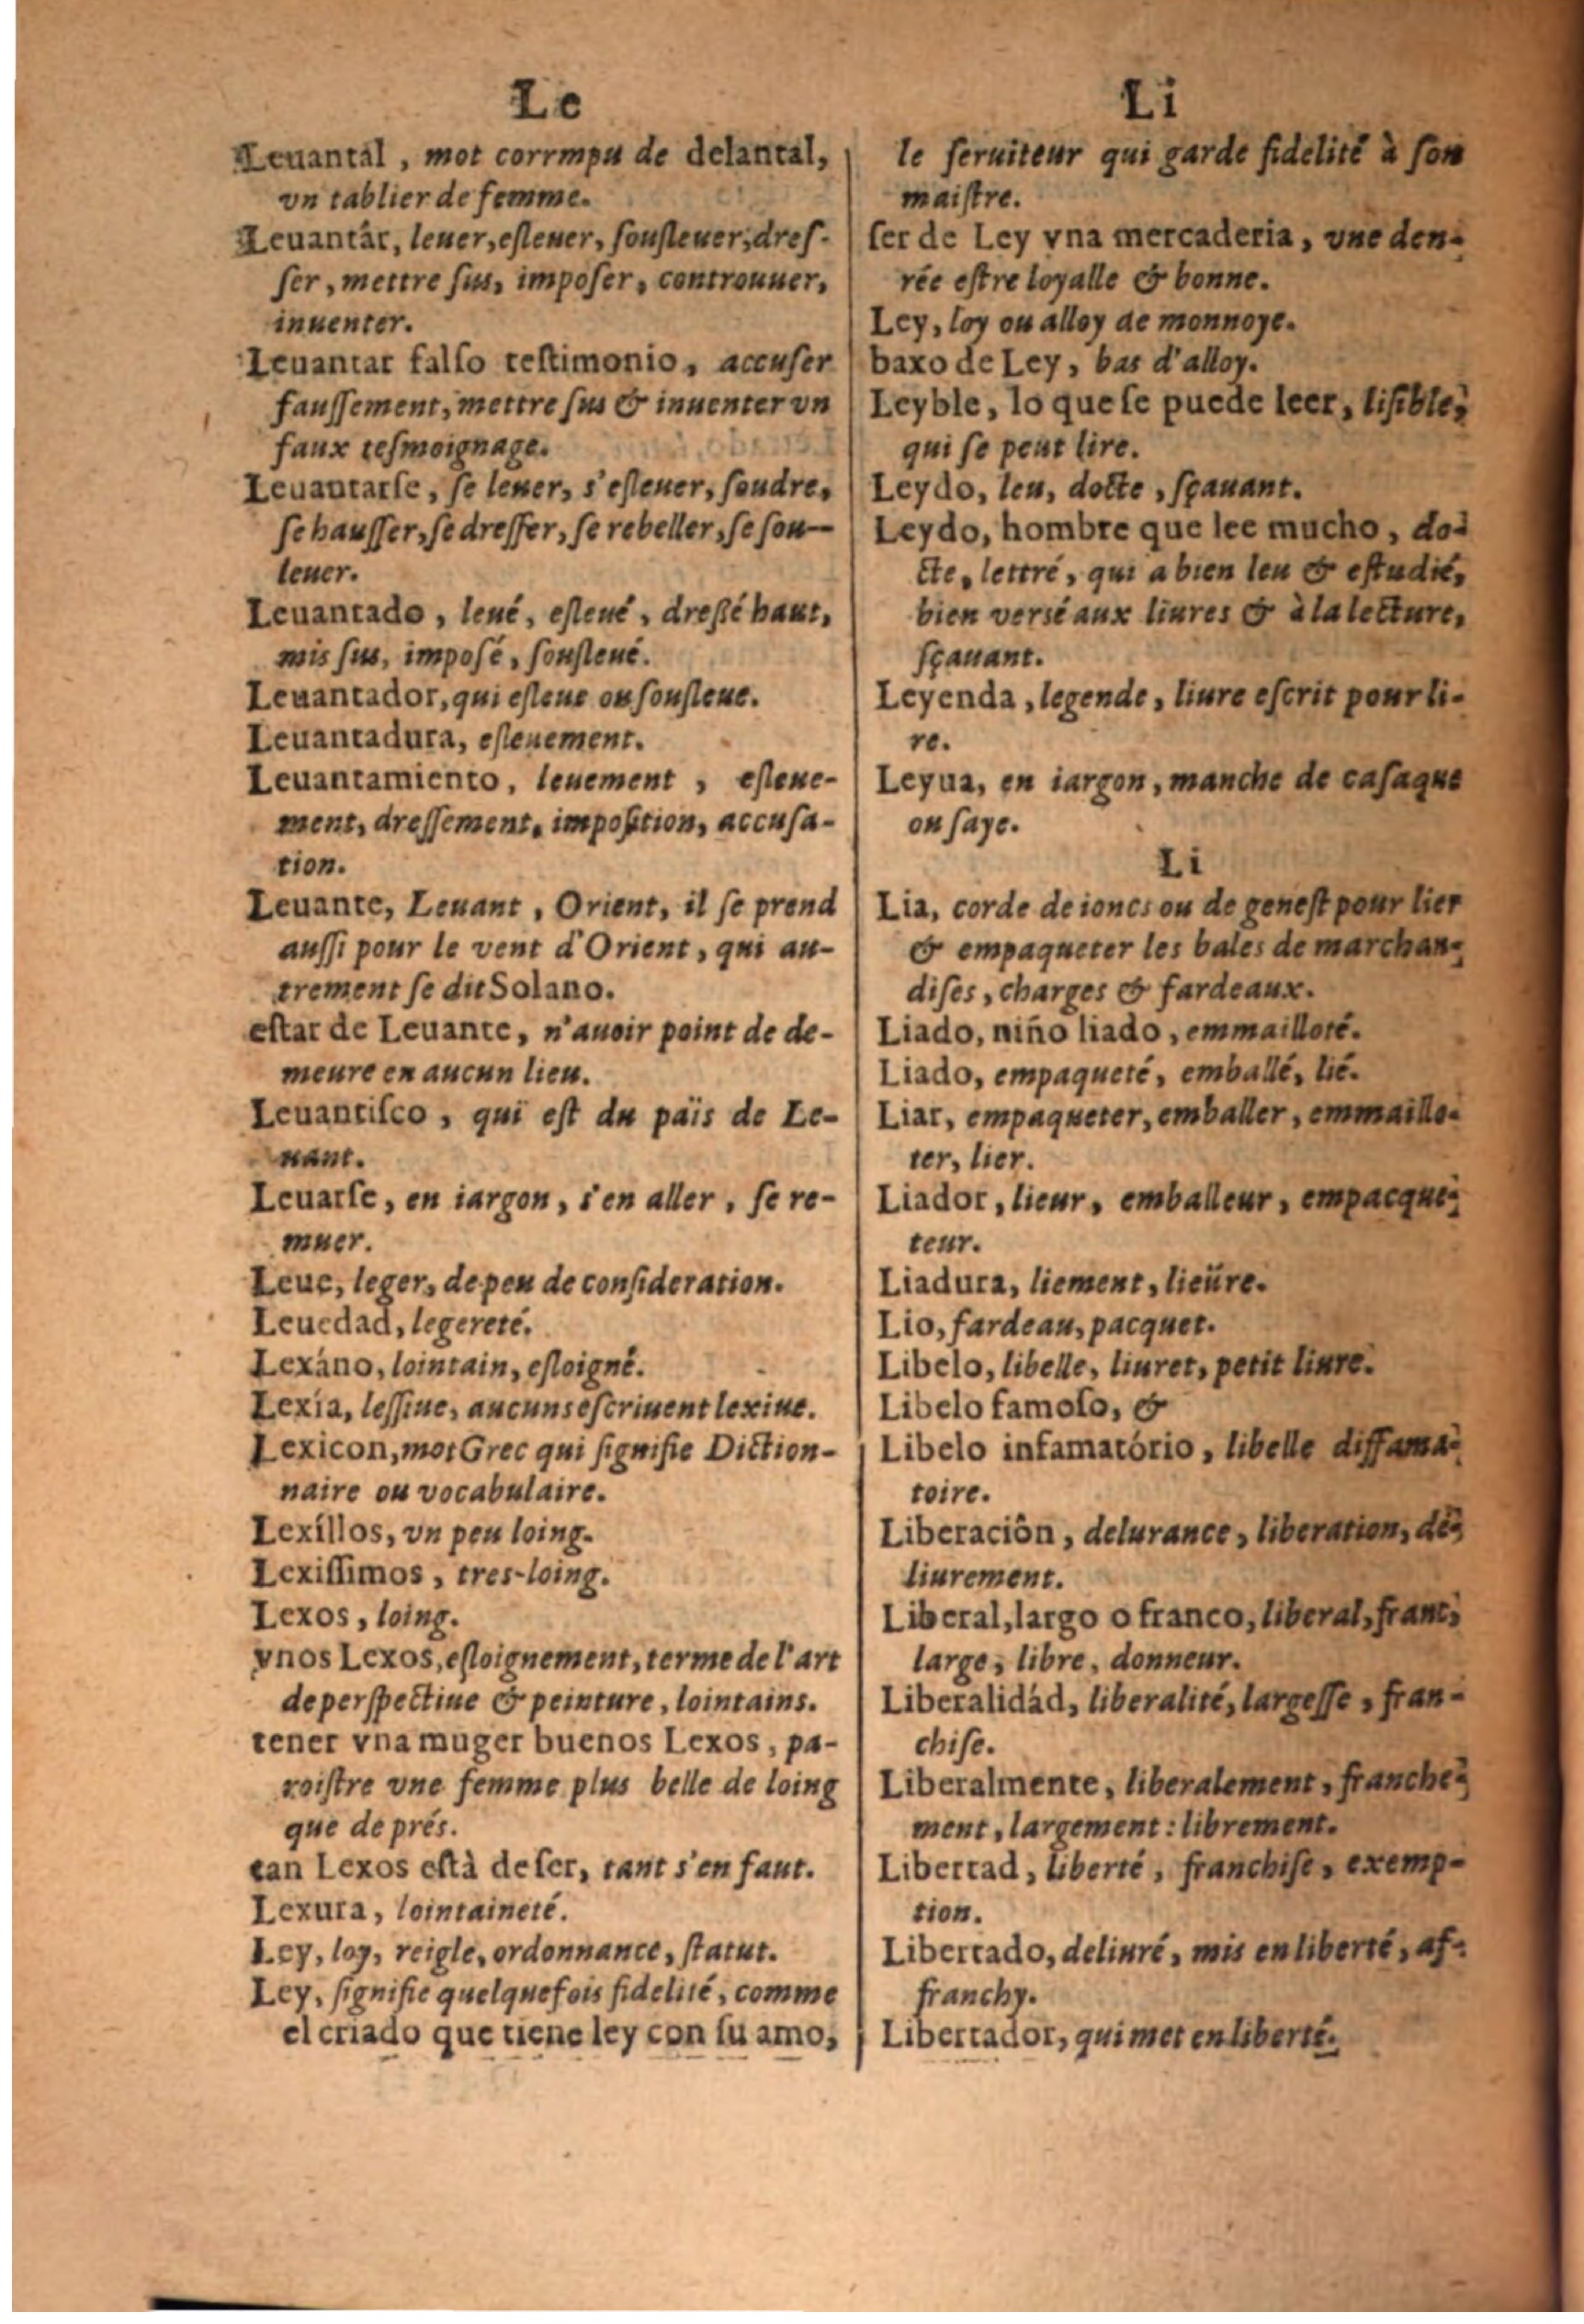 Le
Leuantál, mot corrmpu de delantal,
vn tablier de femme.
Leuantâr, leuer, eſleuer, ſouſleuer, dreſ-
ſer, mettre ſus, impoſer, controuuer,
inuenter.
Leuantar falſo teſtimonio, accuſer
fauſſement, mettre ſus & inuenter vn
faux teſmoignage.
Leuantarſe, ſe leuer, s'eſleuer, ſoudre,
ſe hauſſer, ſe dreſſer, ſe rebeller, ſe ſou-
leuer.
Leuantado, leué, eſleué, dreßé haut,
mis ſus, impoſé, ſouſleué.
Leuantador, qui eſleue ou ſouſleue.
Leuantadura, eſleuement.
Leuantamiento, leuement, eſleue-
ment, dreſſement, impoſition, accuſa-
tion.
Leuante, Leuant, Orient, il ſe prend
auſſi pour le vent d'Orient, qui au-
trement ſe dit Solano.
eſtar de Leuante, n'auoir point de de-
meure en aucun lieu.
Leuantiſco, qui eſt du païs de Le-
uant.
Leuarſe, en iargon, s'en aller, ſe re-
muer.
Leue, leger, de peu de conſideration.
Leuedad, legereté.
Lexáno, lointain, eſloigné.
Lexía, leſſiue, aucuns eſcriuent lexiue.
Lexicon, mot Grec qui ſignifie Diction-
naire ou vocabulaire.
Lexíllos, vn peu loing.
Lexiſſimos, tres-loing.
Lexos, loing.
vnos Lexos, eſloignement, terme de l'art
de perſpectiue & peinture, lointains.
tener vna muger buenos Lexos, pa-
roiſtre vne femme plus belle de loing
que de prés.
tan Lexos eſtà de ſer, tant s'en faut.
Lexura, lointaineté.
Ley, loy, reigle, ordonnance, ſtatut.
Ley, ſignifie quelquefois fidelité, comme
el criado que tiene ley con ſu amo,
Li
le ſeruiteur qui garde fidelité à ſon
maiſtre.
ſer de Ley vna mercaderia, vne den-
rée eſtre loyalle & bonne.
Ley, loy ou alloy de monnoye.
baxo de Ley, bas d'alloy.
Leyble, lo que ſe puede leer, liſible,
qui ſe peut lire.
Leydo, leu, docte, ſçauant.
Leydo, hombre que lee mucho, do-
cte, lettré, qui a bien leu & eſtudié,
bien versé aux liures & à la lecture,
ſçauant.
Leyenda, legende, liure eſcrit pour li-
re.
Leyua, en iargon, manche de caſaque
ou ſaye.
Li
Lia, corde de ioncs ou de geneſt pour lier
& empaqueter les bales de marchan-
diſes, charges & fardeaux.
Liado, niño liado, emmailloté.
Liado, empaqueté, emballé, lié.
Liar, empaqueter, emballer, emmaillo-
ter, lier.
Liador, lieur, emballeur, empacque-
teur.
Liadura, liement, lieüre.
Lio, fardeau, pacquet.
Libelo, libelle, liuret, petit liure.
Libelo famoſo, &
Libelo infamatório, libelle diffama-
toire.
Liberaciôn, delurance, liberation, dé-
liurement.
Liberal, largo o franco, liberal, franc,
large, libre, donneur.
Liberalidád, liberalité, largeſſe, fran-
chiſe.
Liberalmente, liberalement, franche-
ment, largement: librement.
Libertad, liberté, franchiſe, exemp-
tion.
Libertado, deliuré, mis en liberté, af-
franchy.
Libertador, qui met en liberté.